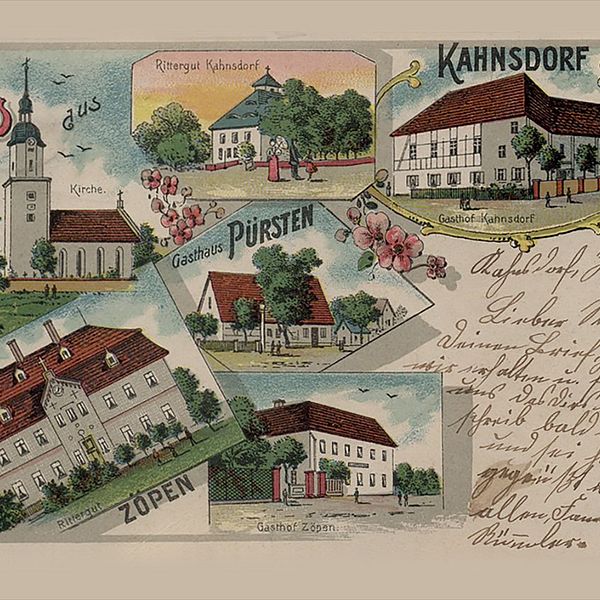 aus
Rittergut Kahnsdorf
KAHNSDORF
Kirche.
Gasthof Kahnsdorf
Gasthaus PÜRSTEN
Rittergut
ZÖPEN
Gasthof Zöpen.
Kahnsdorf,
Lieber
Deinen Brief
wir erhalten u.
uns das
schreib bald
und sei
gegrüßt
allen, Fam